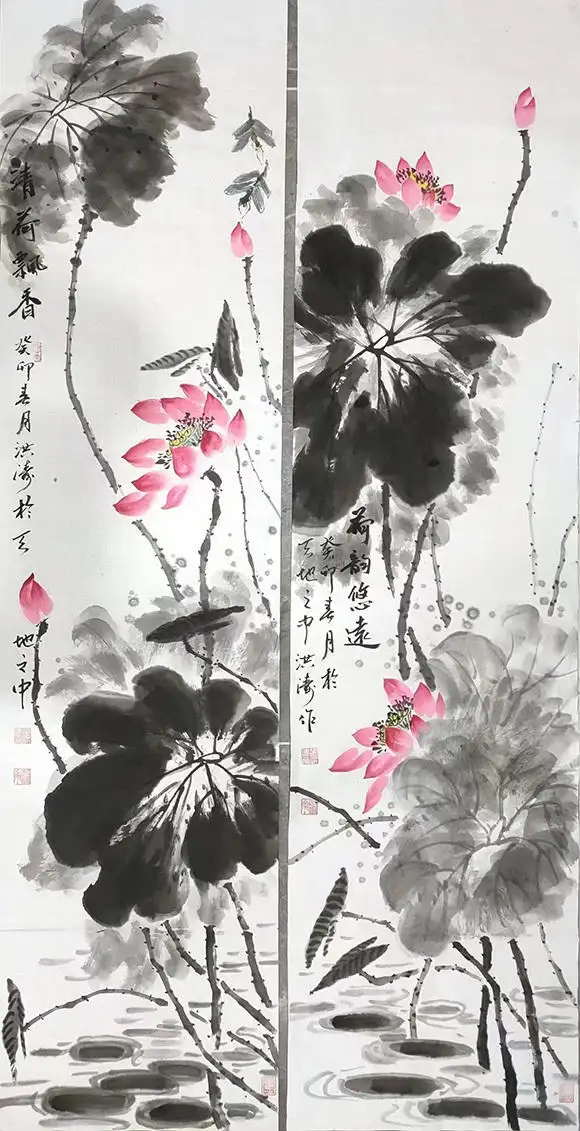 清荷飘香
癸卯春月洪涛於天
地之中
荷韵悠远
癸卯春月於
天地之中洪涛作